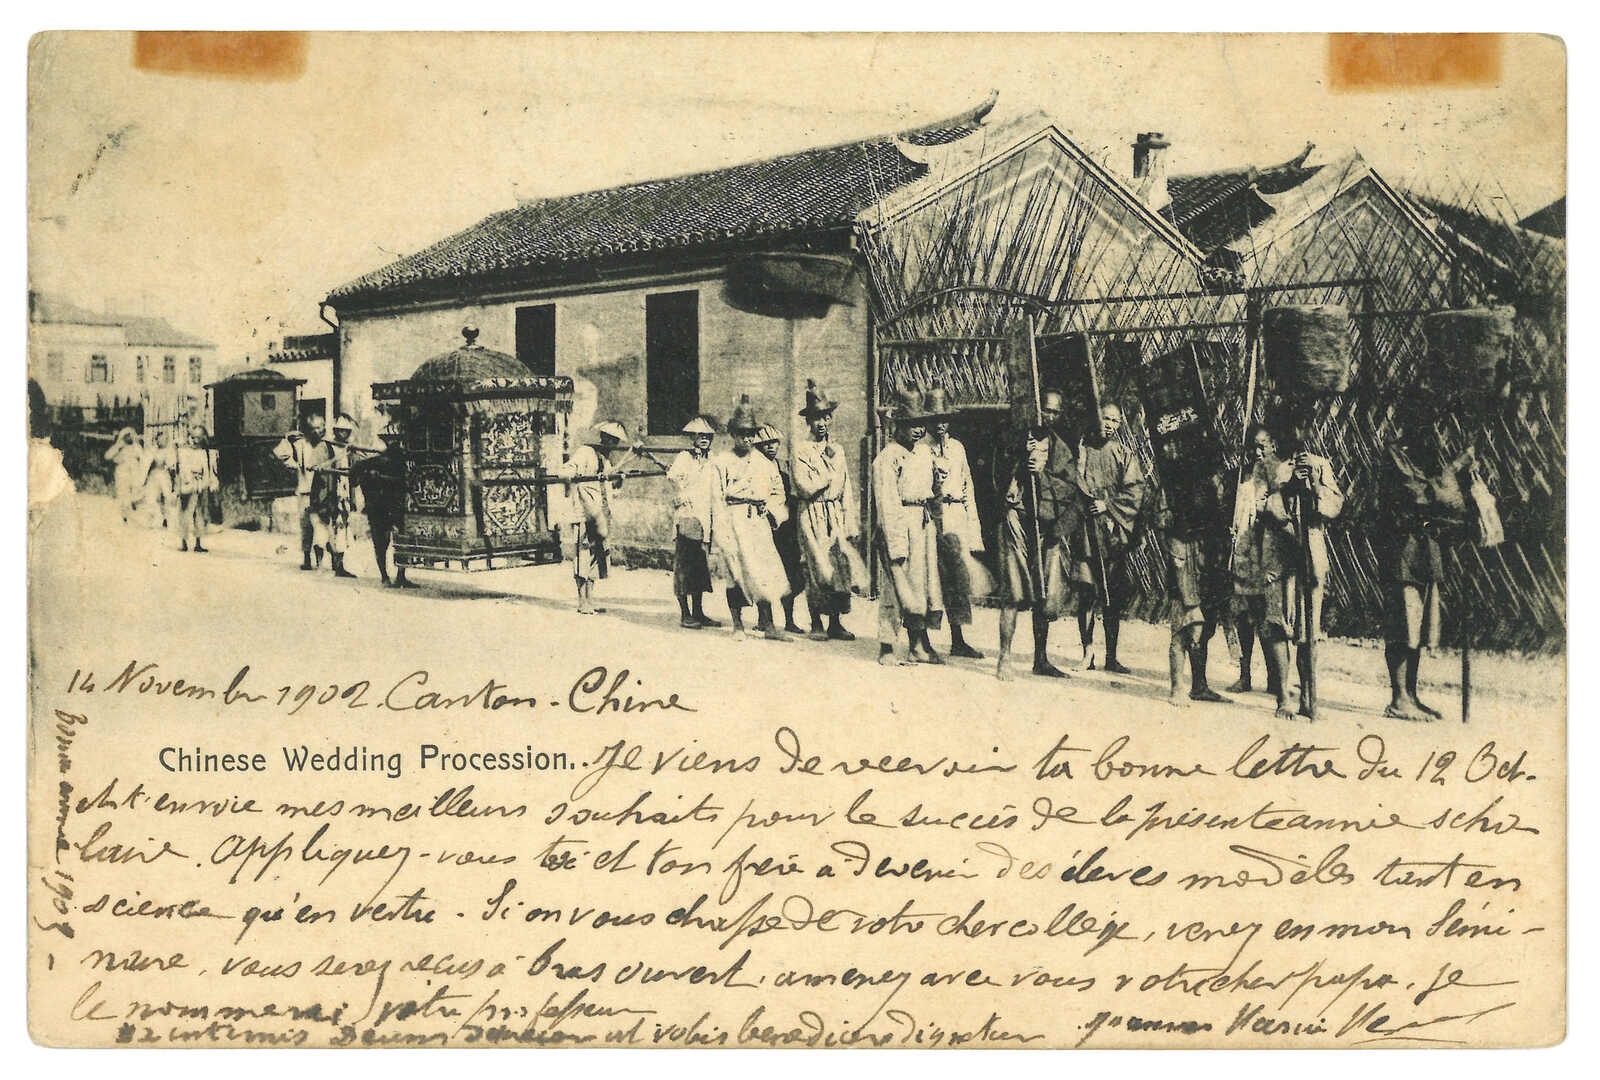 14 Novembre 1902. Canton - Chine
Chinese Wedding Procession.
Je viens de recevoir ta bonne lettre du 12 Oct.
et t'envoie mes meilleurs souhaits pour le succès de la présente année sco
laire. Appliquez-vous toi et ton frère à devenir des élèves modèles tant en
science qu'en vertu. Si on vous chasse de votre cher collège, venez en mon Sémi-
naire, vous serez reçus à bras ouvert. amenez avec vous votre cher papa. Je
le nommerai votre professeur
intimis Deum ut vobis benedicere dignetur
bonne année 1903